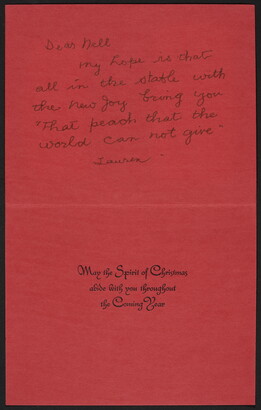 Dear Nell
my hope is that
all in the stable with
the new Joy bring you
"That peach that the
world can not give"
Lauren
May the Spirit of Christmas
abide with you throughout
the Coming Year